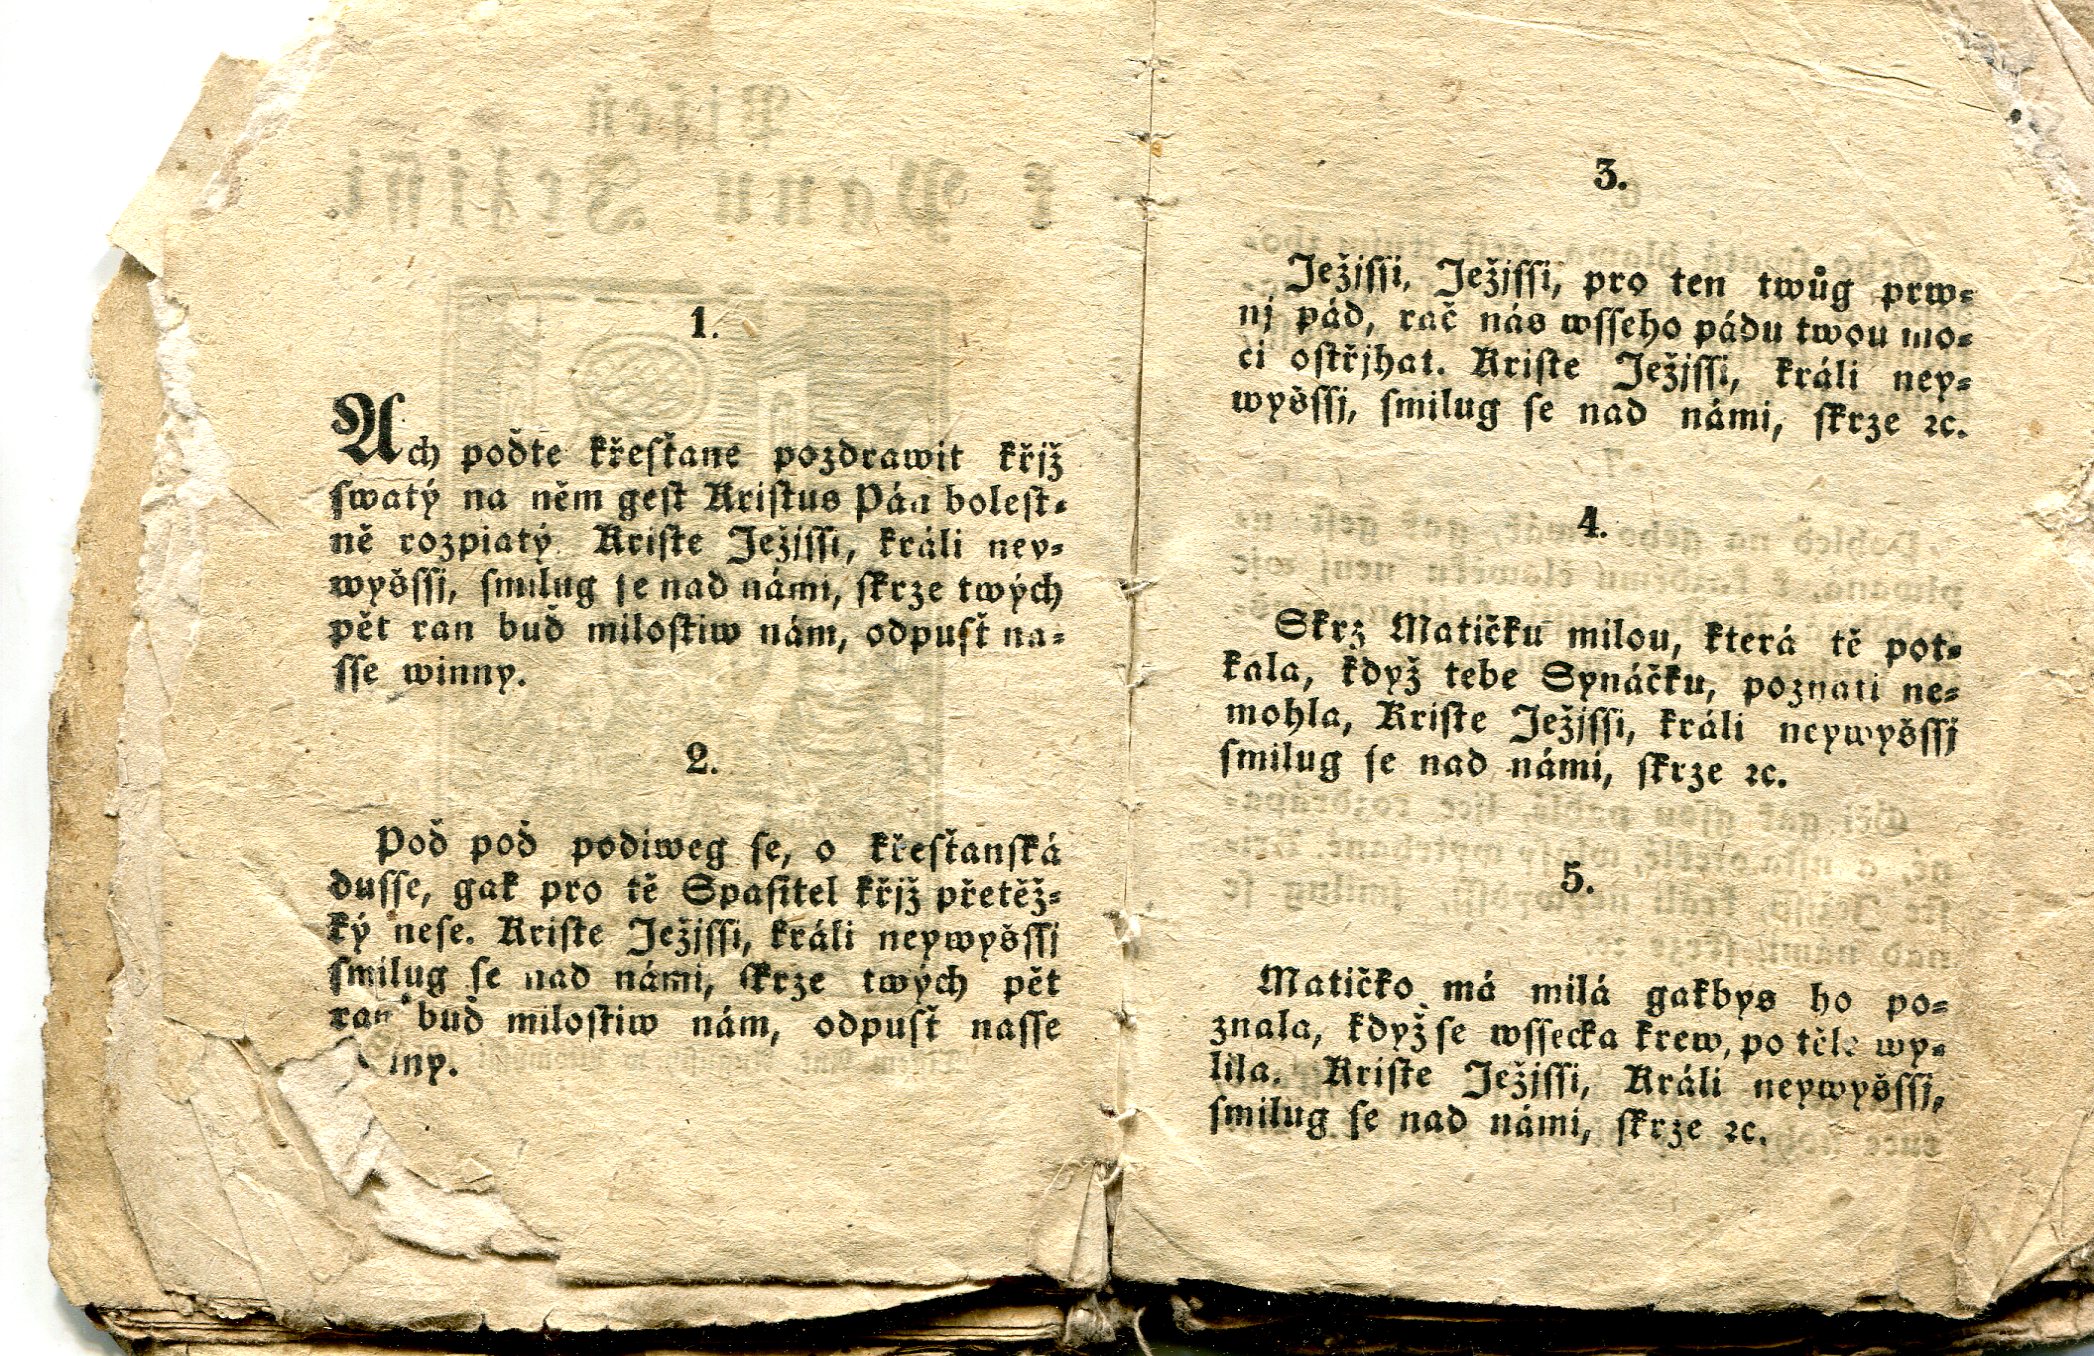 1.
Ach poďte křesťane pozdrawit křjž
swatý na něm gest Kristus Pán bolest-
ně rozpiatý Kriste Ježjssi, králi ney-
wyšssj, smilug se nad námi, skrze twých
pět ran buď milostiw nám, odpusť na-
sse winny.
2.
Poď poď podiweg se, o křesťanská
dusse, gak pro tě Spasitel křjž přetěž-
ký nese. Kriste Ježjssi, králi neywyšssj
smilug se nad námi, skrze twých pět
ran buď milostiw nám, odpusť nasse
iny.
3.
Ježjssi, Ježjssi, pro ten twůg prw-
nj pád, rač nás wsseho pádu twou mo-
ci ostřjhat. Kriste Ježjssi, králi ney-
wyšssj, smilug se nad námi, skrze ꝛc.
4.
Skrz Matičku milou, která tě pot-
kala, když tebe Synáčku, poznati ne-
mohla, Kriste Ježjssi, králi neywyšssj
smilug se nad námi, skrze ꝛc.
5.
Matičko má milá gakbys ho po-
znala, když se wssecka krew, po těle wy-
lila. Kriste Ježjssi, Králi neywyšssj,
smilug se nad námi, skrze ꝛc.